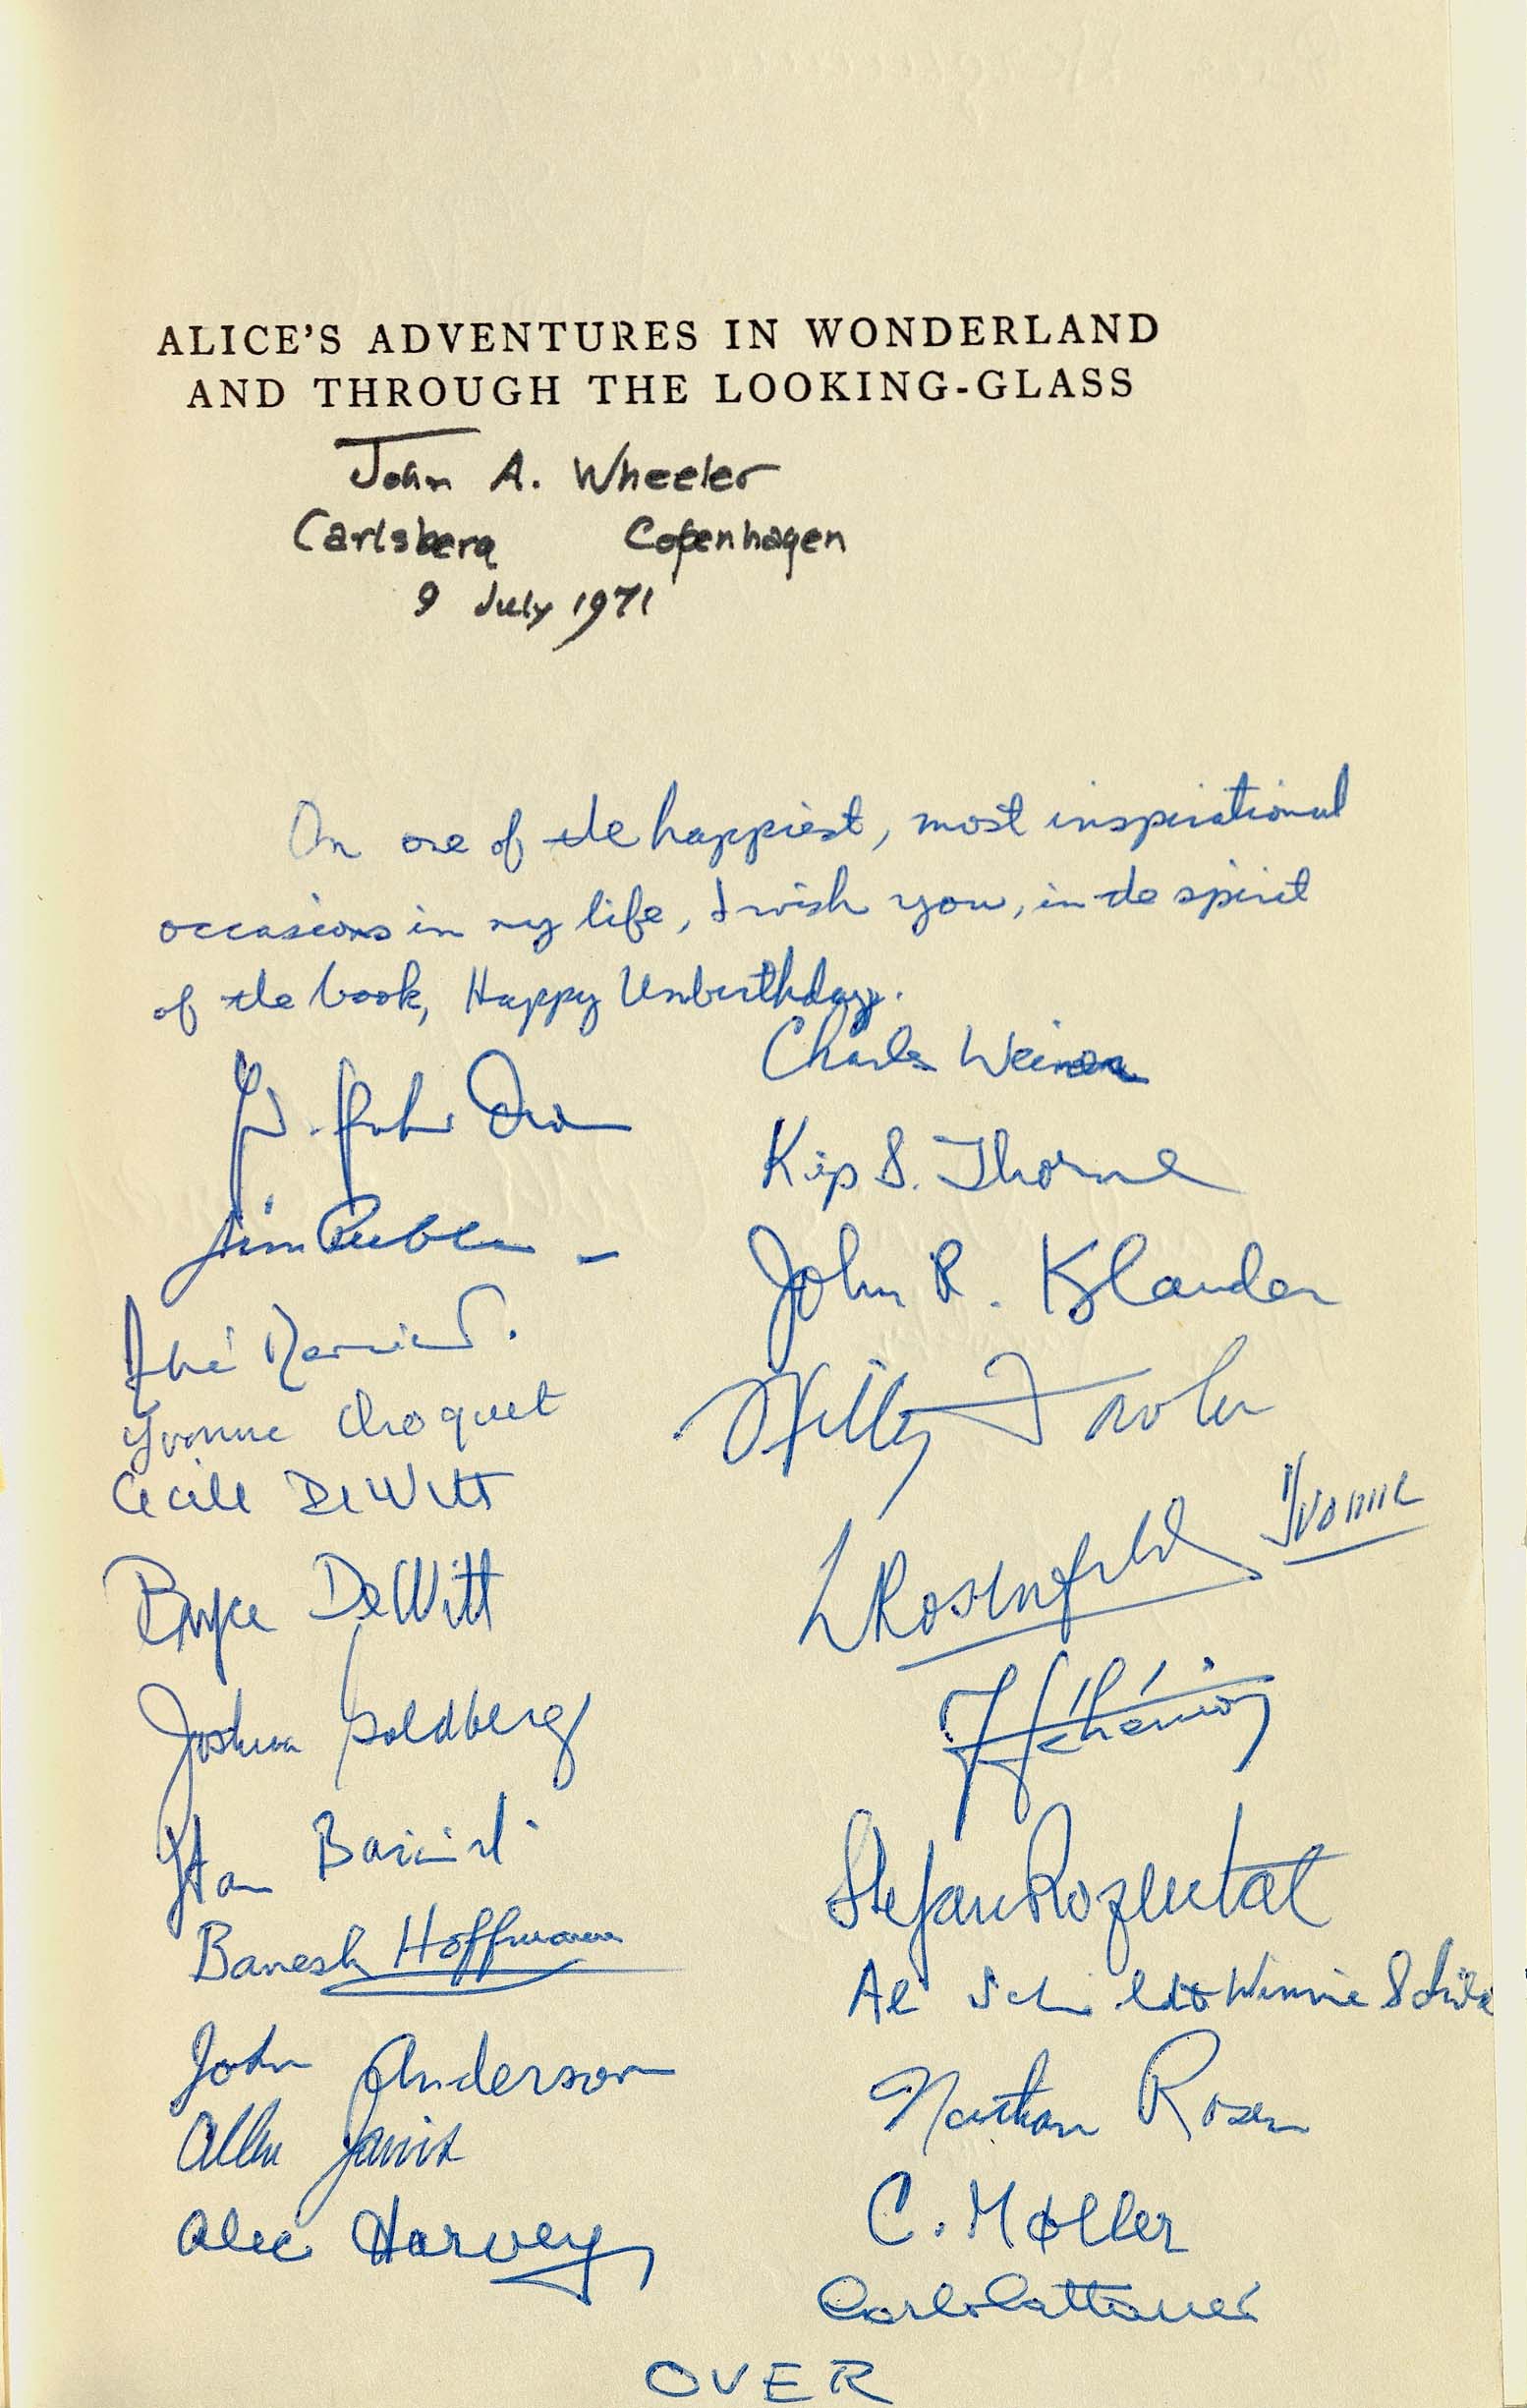 ALICE'S ADVENTURES IN WONDERLAND
AND THROUGH THE LOOKING-GLASS
John A. Wheeler
Carlsberg Copenhagen
9 July 1971
On one of the happiest, most inspirational
occasions in my life, I wish you, in the spirit
of the book, Happy Unbirthday.
Charles Weiner
Kip S. Thorne
Jim
John R. Klauder
Yvonne Choquet
Willy Fowler
Cecile DeWitt
Yvonne
L Rosenfeld
Bryce DeWitt
Joshua Goldberg
Stan
Stefan Rozental
Banesh Hoffmann
Al Schild & Winnie Schild
John Anderson
Nathan Rosen
Allen Janis
C. Møller
Alec Harvey
Carlo Cattaneo
OVER